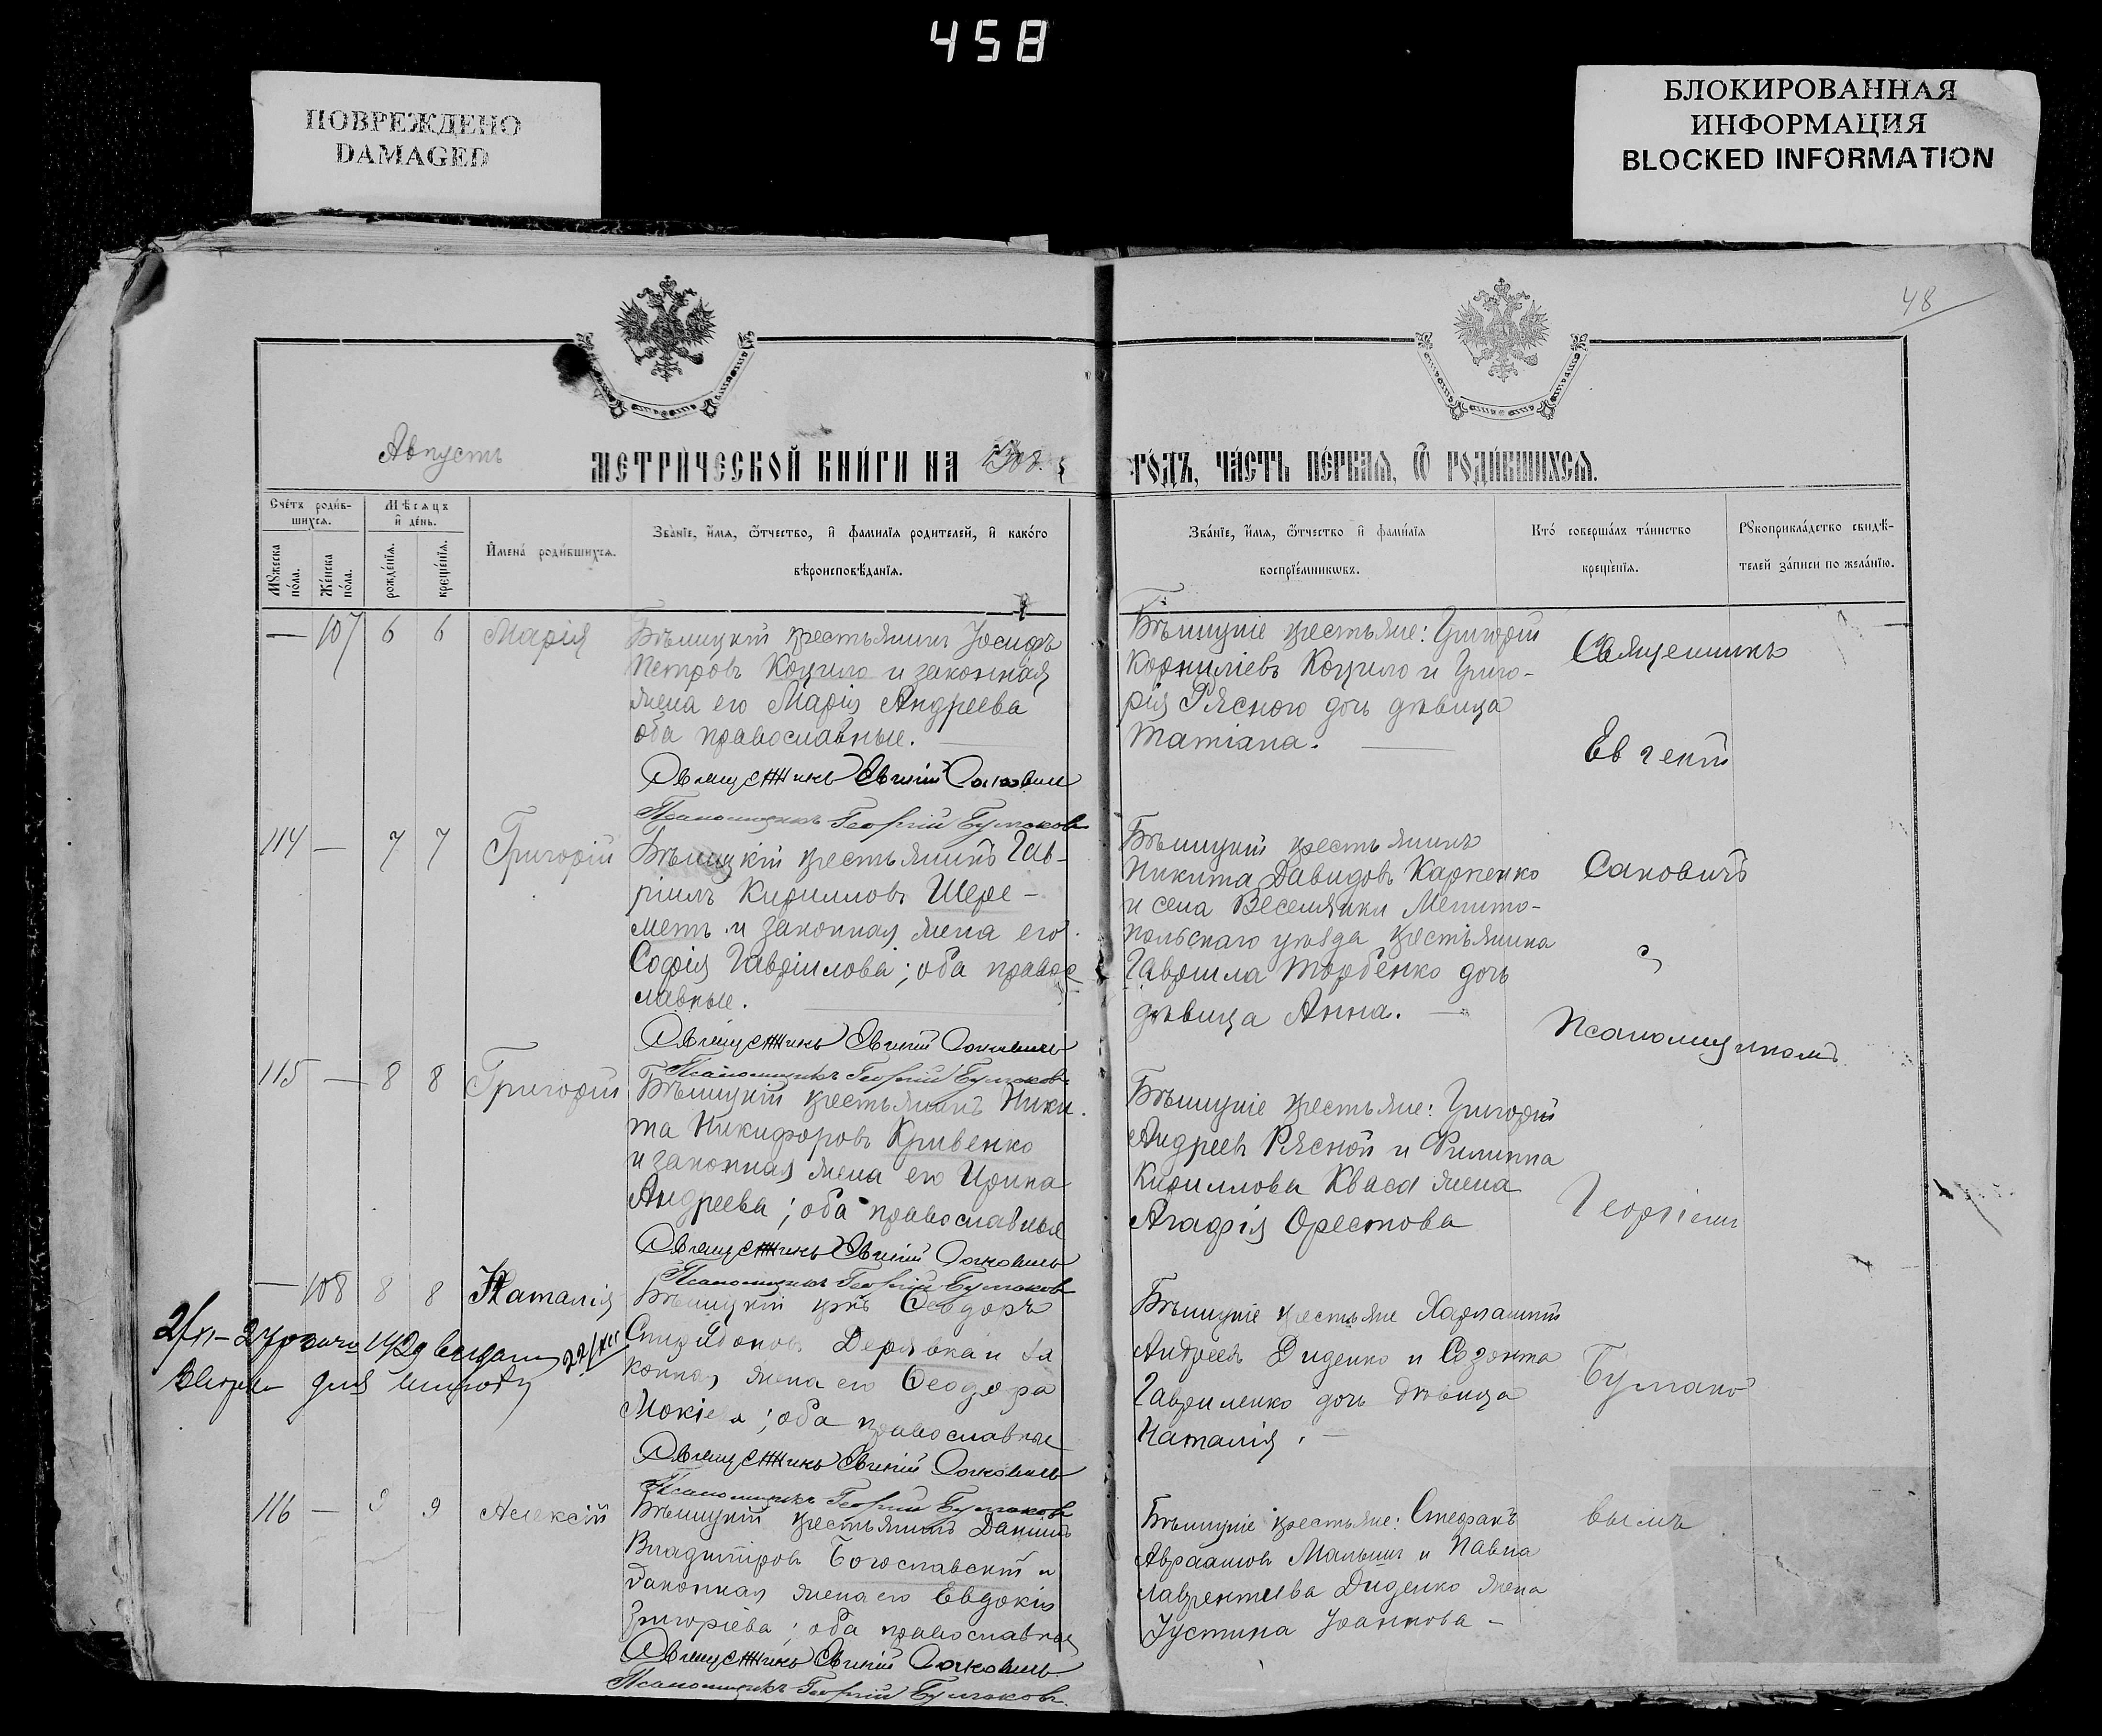 458
ПОВРЕЖДЕНО
DAMAGED
БЛОКИРОВАННАЯ
ИНФОРМАЦИЯ
BLOCKED INFORMATION
48
Августъ
МЕТРИЧЕСКОЙ КНИГИ НА 1908
ГОДЪ, ЧАСТЬ ПЕРВАЯ, Ѿ РОДИВШИХСЯ.
Счетъ родив-
шихся.
Мужеска
пола.
Женска
пола.
Мѣсяцъ
и день.
рожденія.
крещенія.
Имена родившихся.
Званіе, имя, ѿчество, и фамилія родителей, и какого
вѣроисповѣданія.
Званіе, имя, ѿчество и фамилія
воспріемниковъ.
Кто совершалъ таинство
крещенія.
Рукоприкладство свидѣ-
телей записи по желанію.
— 107 6 6 Марія
крестьянинъ Іосифъ
Петровъ Коцило и законная
жена его Марія Андреева
оба православные.
Священникъ Евгеній Сановичъ
Псаломщикъ Георгій Бумаковъ
крестьяне: Григорій
Корниліевъ Коцило и Григо-
рія Ряснаго дочь дѣвица
Татіана.
Священникъ
Евгеній
Сановичъ
съ
Псаломщикомъ
Георгіемъ
Бумако
вымъ
114 — 7 7 Григорій
крестьянинъ Гав-
ріилъ Кирилловъ Шере-
метъ и законная жена его
Софія Гавріилова; оба правос
лавные.
Священникъ Евгеній Сановичъ
Псаломщикъ Георгій Бумаковъ
крестьянинъ
Никита Давидовъ Карпенко
и села Веселянки Мелито-
польскаго уѣзда крестьянина
Гавриила Торбенко дочь
дѣвица Анна.
115 — 8 8 Григорій
крестьянинъ Ники
та Никифоровъ Кривенко
и законная жена его Ирина
Андреева; оба православныя
Священникъ Евгеній Сановичъ
Псаломщикъ Георгій Бумаковъ
крестьяне: Григорій
Андреевъ Рясной и Филиппа
Кириллова Кваса жена
Агафія Орестова
— 108 8 8 Наталія
крнъ Ѳеодоръ
Спиридоновъ Деревка и за
конная жена его Ѳеодора
Мокіева; оба православные
Священникъ Евгеній Сановичъ
Псаломщикъ Георгій Бумаковъ
крестьяне Харлампій
Андреевъ Диденко и Созонта
Гавриленко дочь дѣвица
Наталія.
116 — 9 9 Алексій
крестьянинъ Даніилъ
Владиміровъ Богославскій и
законная жена его Евдокія
Григоріева; оба православные
Священникъ Евгеній Сановичъ
Псаломщикъ Георгій Бумаковъ
крестьяне: Стефанъ
Авраамовъ Малышъ и Павла
Лаврентіева Диденко жена
Іустина Іоаннова